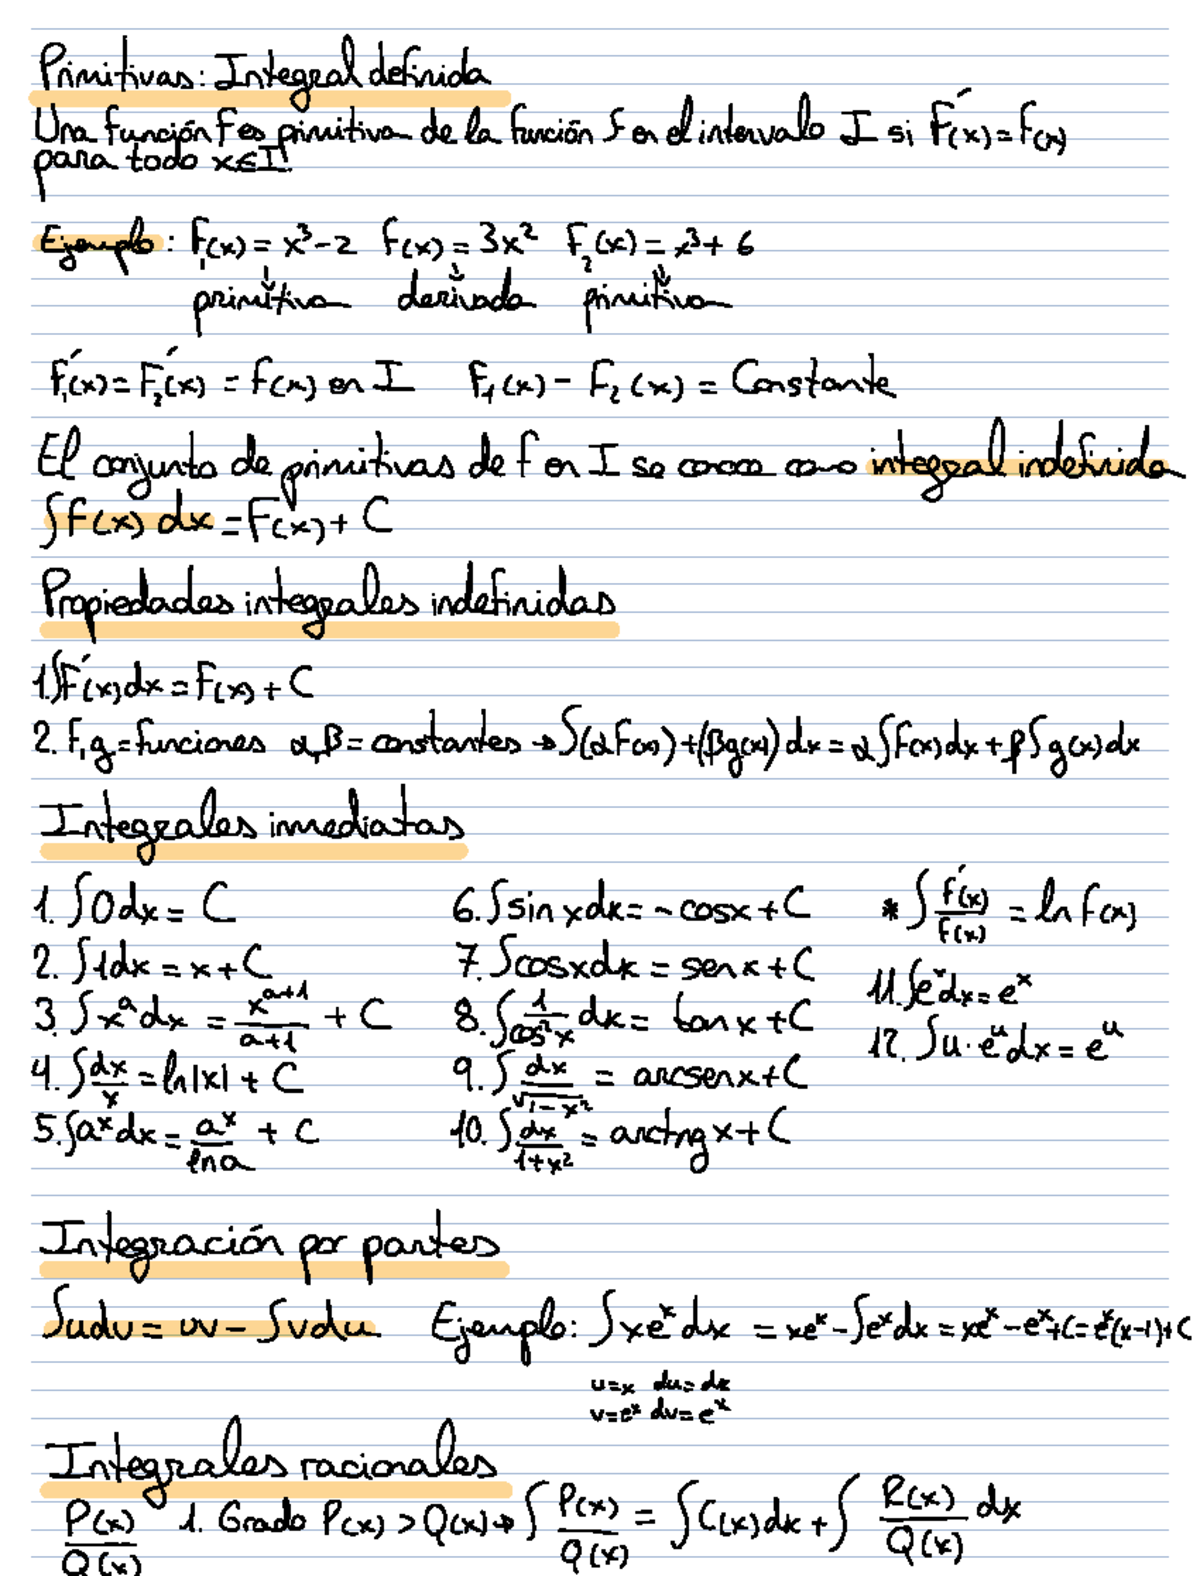 Primitivas: Integral definida
Una función F es primitiva de la función f en el intervalo I si F'(x) = f(x)
para todo x∈I.
Ejemplo: F₁(x) = x³-2 f(x) = 3x² F₂(x) = x³+6
primitiva derivada primitiva
F₁'(x) = F₂'(x) = f(x) en I F₁(x) - F₂(x) = Constante
El conjunto de primitivas de f en I se conoce como integral indefinida
∫f(x) dx = F(x) + C
Propiedades integrales indefinidas
1. ∫F'(x)dx = F(x) + C
2. F, g = funciones α, β = constantes → ∫(αF(x)) + (βg(x)) dx = α∫F(x)dx + β∫g(x)dx
Integrales inmediatas
1. ∫0dx = C
2. ∫1dx = x + C
3. ∫xᵃdx = xᵃ⁺¹/a+1 + C
4. ∫dx/x = ln|x| + C
5. ∫aˣdx = aˣ/ln a + C
6. ∫sin x dx = - cosx + C
7. ∫cosxdx = sen x + C
8. ∫1/cos²x dx = tan x + C
9. ∫dx/√1-x² = arcsenx + C
10. ∫dx/1+x² = arctng x + C
* ∫F'(x)/F(x) = ln F(x)
11. ∫eˣdx = eˣ
12. ∫u·eᵘdx = eᵘ
Integración por partes
∫udv = uv - ∫vdu Ejemplo: ∫xeˣdx = xeˣ - ∫eˣdx = xeˣ - eˣ + C = eˣ(x-1) + C
u=x du=dx
v=eˣ dv=eˣ
Integrales racionales
P(x)/Q(x) 1. Grado P(x) > Q(x) → ∫P(x)/Q(x) = ∫C(x)dx + ∫R(x)/Q(x) dx